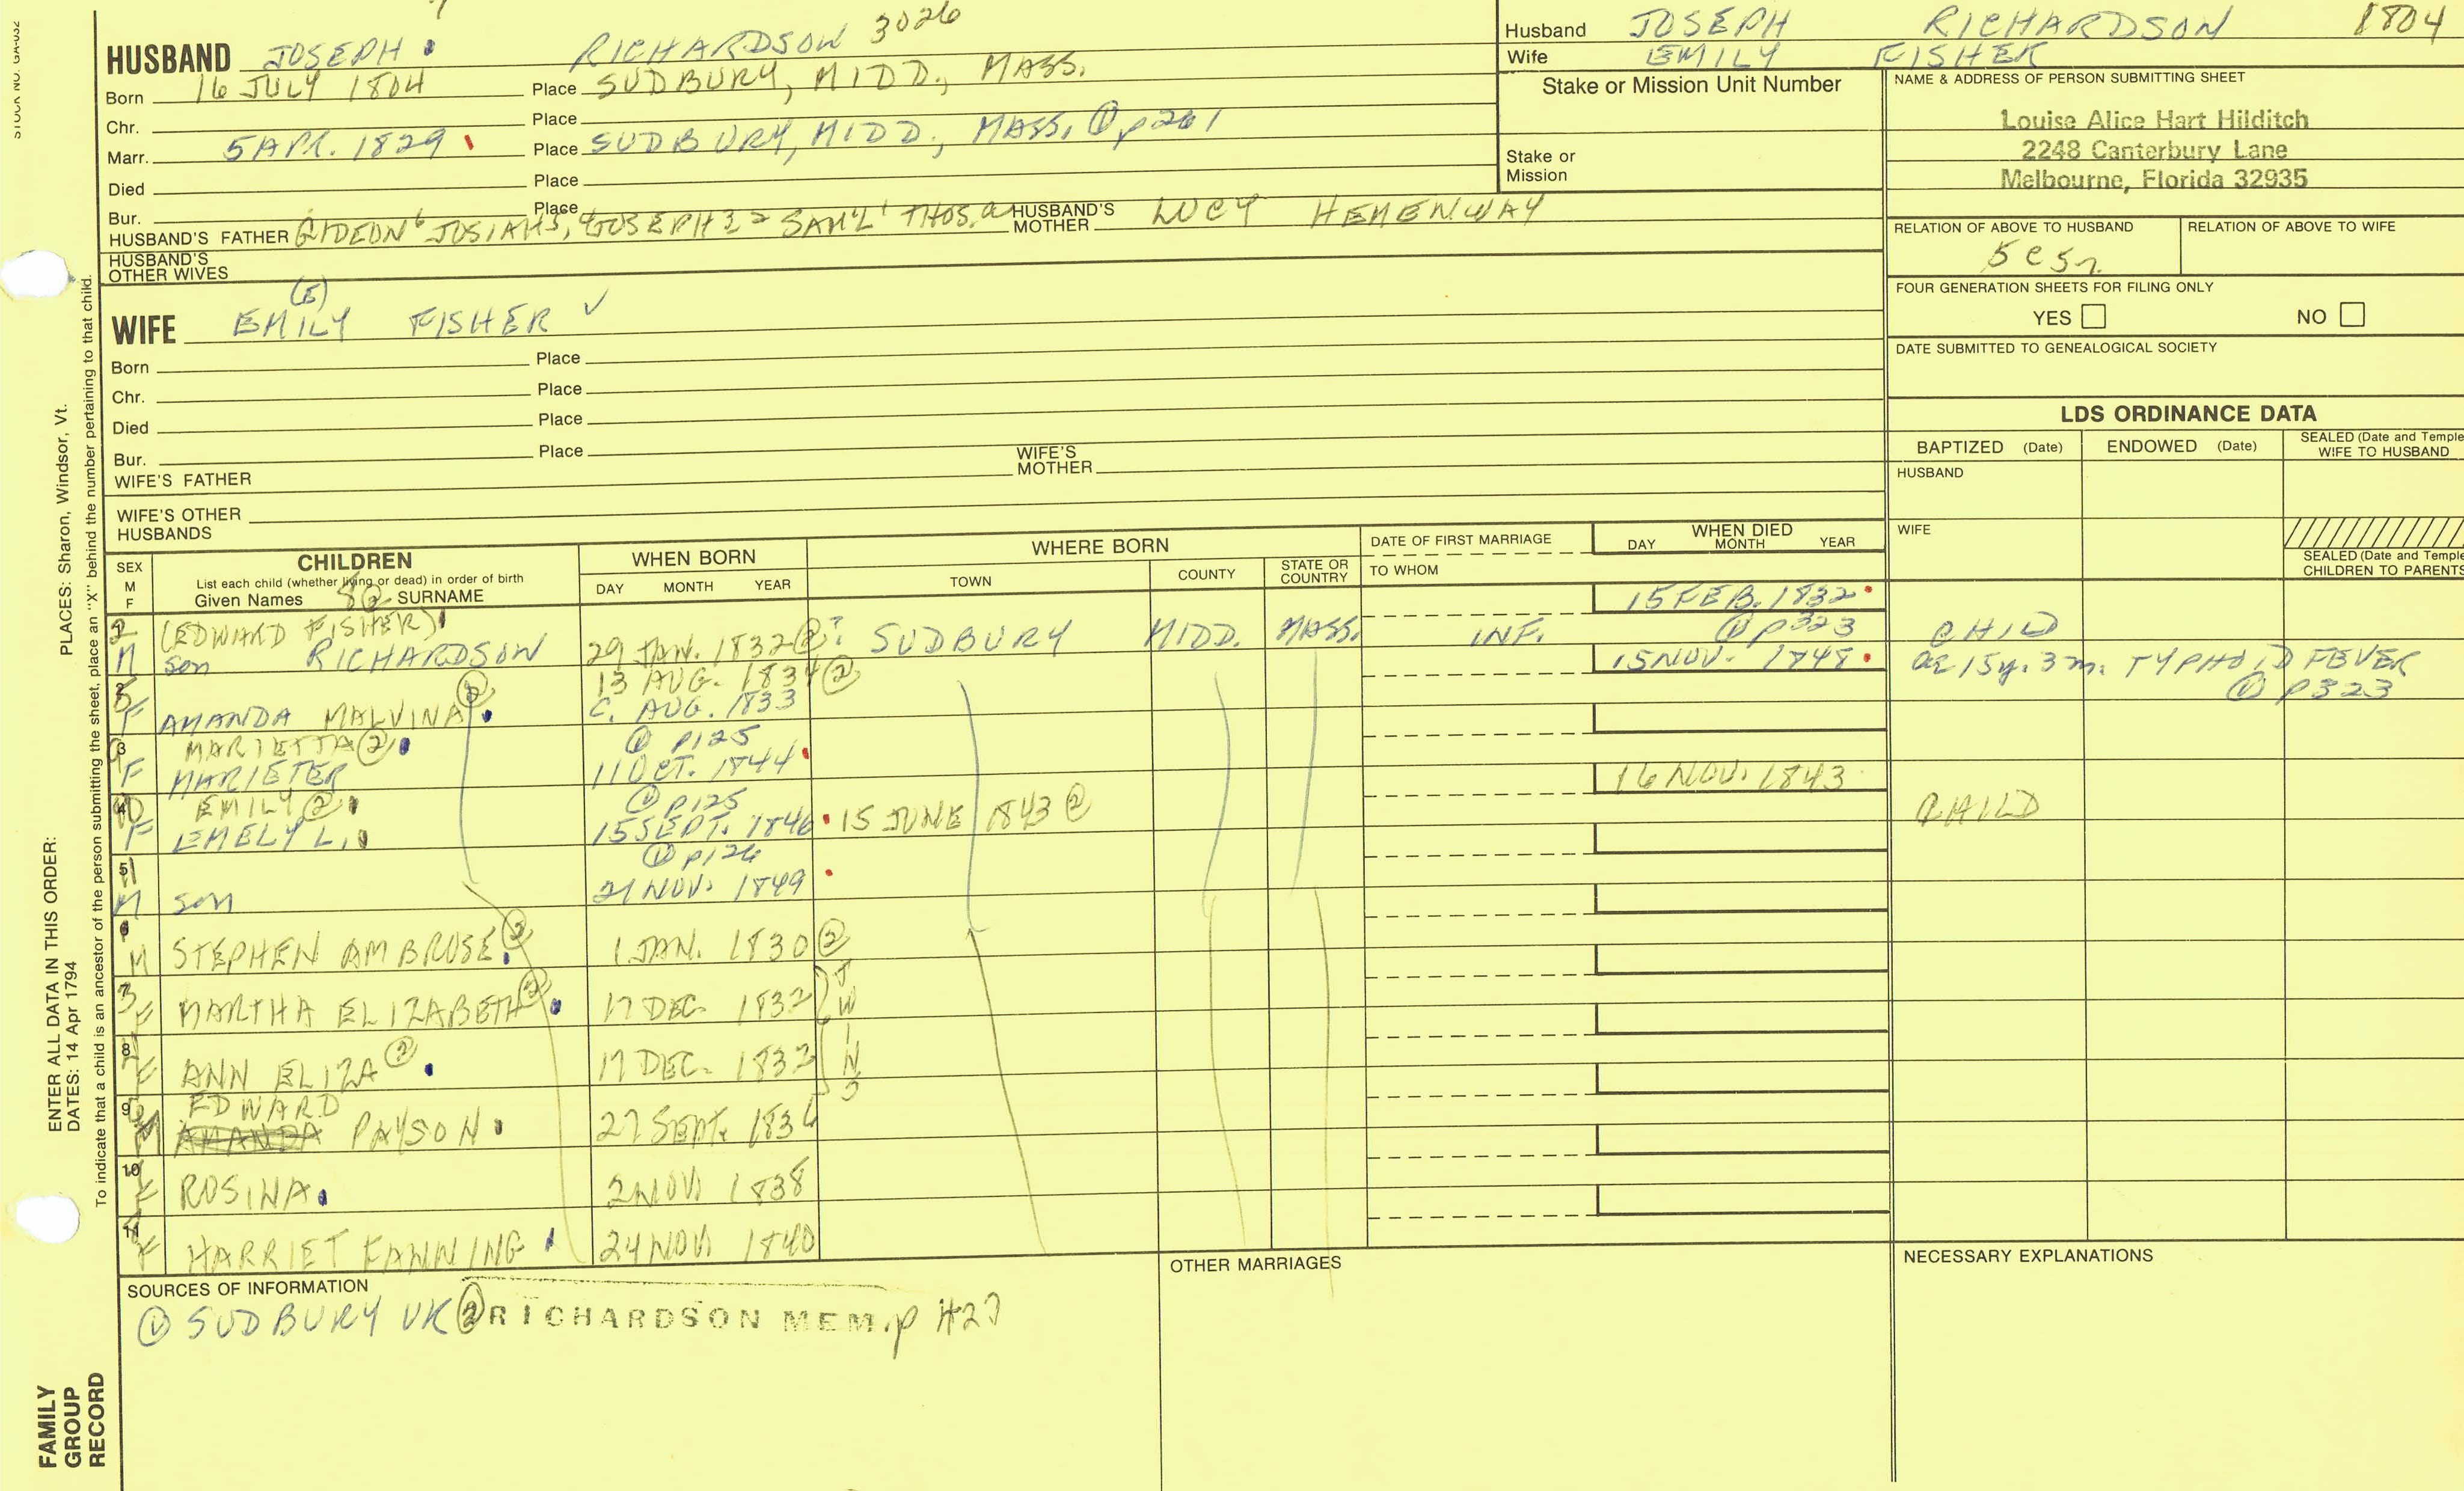 STOCK NO. GA-032
HUSBAND JOSEPH RICHARDSON 3026
Born 16 JULY 1804 Place SUDBURY, MIDD., MASS.
Chr. Place
Marr. 5 APR. 1829 Place SUDBURY, MIDD., MASS. ① p261
Died Place
Bur. Place
HUSBAND'S FATHER GIDEON⁶ JOSIAH⁵, ⁴JOSEPH³ ² SAM'L¹ THOS. HUSBAND'S MOTHER LUCY HEMENWAY
HUSBAND'S OTHER WIVES
(E)
WIFE EMILY FISHER ✓
Born Place
Chr. Place
Died Place
Bur. Place
WIFE'S FATHER WIFE'S MOTHER
WIFE'S OTHER HUSBANDS
Husband JOSEPH RICHARDSON 1804
Wife EMILY FISHER
Stake or Mission Unit Number
Stake or Mission
NAME & ADDRESS OF PERSON SUBMITTING SHEET
Louise Alice Hart Hilditch
2248 Canterbury Lane
Melbourne, Florida 32935
RELATION OF ABOVE TO HUSBAND RELATION OF ABOVE TO WIFE
FOUR GENERATION SHEETS FOR FILING ONLY
YES NO
DATE SUBMITTED TO GENEALOGICAL SOCIETY
LDS ORDINANCE DATA
BAPTIZED (Date) ENDOWED (Date) SEALED (Date and Temple) WIFE TO HUSBAND
HUSBAND
WIFE
SEALED (Date and Temple) CHILDREN TO PARENTS
SEX M F
CHILDREN
List each child (whether living or dead) in order of birth
Given Names SURNAME
WHEN BORN
DAY MONTH YEAR
WHERE BORN
TOWN COUNTY STATE OR COUNTRY
DATE OF FIRST MARRIAGE
TO WHOM
WHEN DIED
DAY MONTH YEAR
(EDWARD FISHER) 15 FEB. 1832
M son RICHARDSON 29 JAN. 1832 ②? SUDBURY MIDD. MASS. INF. ① p323 CHILD
13 AUG. 1834 ② 15 NOV. 1848 ae 15y. 3m. TYPHOID FEVER
F AMANDA MALVINA ② C. AUG. 1833 ① P323
MARIETTA ② ① p125
F MARIETER 11 OCT. 1844
EMILY ② ① p125 16 NOV. 1843
F EMELY L. 15 SEPT. 1846 15 JUNE 1843 ② CHILD
① p126
M son 21 NOV. 1849
M STEPHEN AMBROSE ② 1 JAN. 1830 ②
F MARTHA ELIZABETH ② 17 DEC. 1832 TWINS
F ANN ELIZA ② 17 DEC. 1832
EDWARD
AMANDA PAYSON 27 SEPT. 1836
F ROSINA 2 NOV 1838
F HARRIET FANNING 24 NOV 1840
SOURCES OF INFORMATION
① SUDBURY VR ② RICHARDSON MEM. p 427
OTHER MARRIAGES
NECESSARY EXPLANATIONS
PLACES: Sharon, Windsor, Vt.
To indicate that a child is an ancestor of the person submitting the sheet, place an "X" behind the number pertaining to that child.
ENTER ALL DATA IN THIS ORDER:
DATES: 14 Apr 1794
FAMILY GROUP RECORD